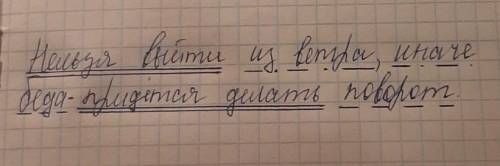 Нельзя выйти из ветра, иначе
беда - придётся делать поворот.